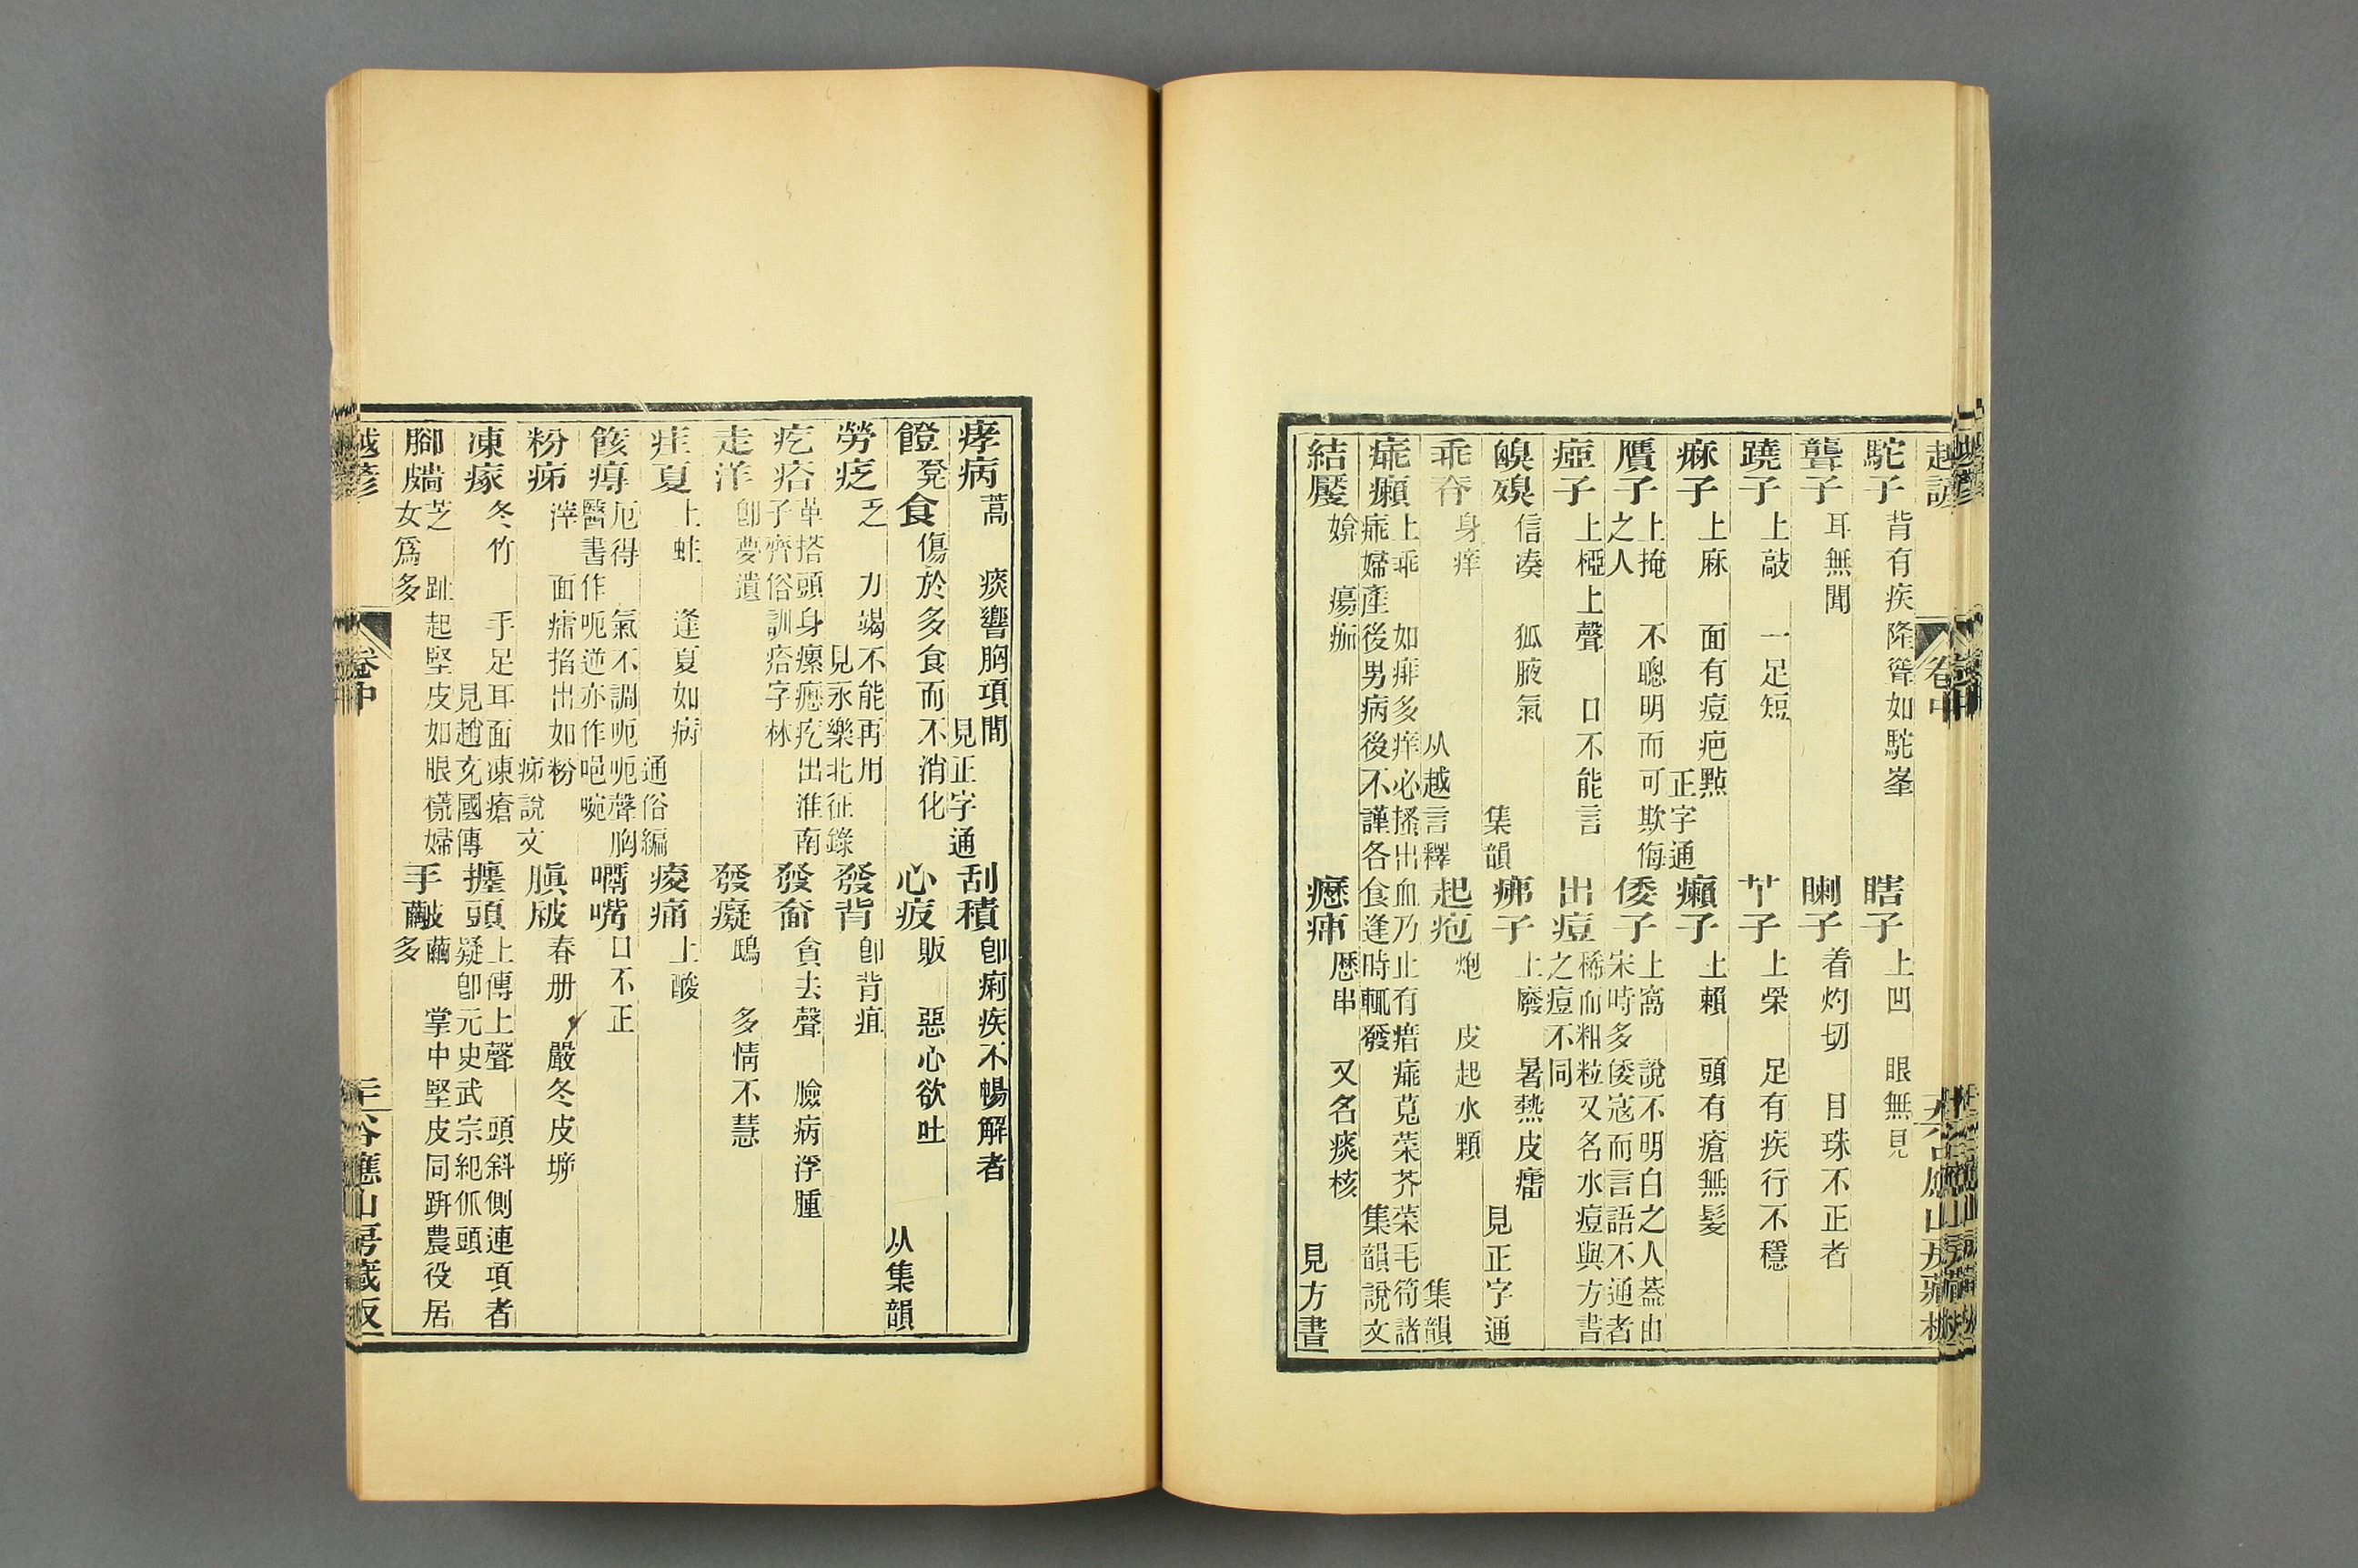 越諺 卷中 谷應山房藏板
駝子 背有疾隆聳如駝峯 瞎子 上凹 眼無見
聾子 耳無聞 瞓子 着灼切 目珠不正者
蹺子 上敲 一足短 子 上榮 足有疾行不穩
痳子 上麻 面有痘疤㸃 正字通 癩子 上賴 頭有瘡無髮
贋子 上掩 不聰明而可欺侮之人 倭子 上窩 說不明白之人葢由宋時多倭寇而言語不通者
瘂子 上椏上聲 口不能言 出痘 稀而粗粒又名水痘與方書之痘不同
信凑 狐腋氣 集韻 疿子 上廢 暑熱皮癗 見正字通
身痒 从越言釋 起疱 炮 皮起水顆 集韻
上乖 如痱多痒必搔出血乃止有瘄 菜芥菜毛筍諸 婦產後男病後不謹各食逢時輒發 集韻說文
結㾨 瘍痂 癧 歷串 又名痰核 見方書
痚病 蒿 痰響胸項間 見正字通 刮積 卽痢疾不暢解者
饐 凳 食 傷於多食而不消化 心疲 販 惡心欲吐 从集韻
勞疺 乏 力竭不能再用 見永樂北征錄 發背 卽背疽
疙瘩 革搭 頭身瘰癧疙出淮南子齊俗訓瘩字林 發奤 貪去聲 臉病浮腫
走洋 卽夢遺 發癡 鴟 多情不慧
疰夏 上蛀 逢夏如病 通俗編 痠痛 上酸
厄得 氣不調呃呃聲胸 醫書作呃逆亦作唈 嘴 口不正
粉㾛 滓 面癗掐出如粉 㾛說文 春册 嚴冬皮
凍瘃 冬竹 手足耳面凍瘡 見趙充國傳 頭 上傳上聲 頭斜側連項者 疑卽元史武宗紀 頭
腳 芝 趾起堅皮如眼 婦女爲多 手 繭 掌中堅皮同趼農役居多
越諺 卷中 二六 谷應山房藏板